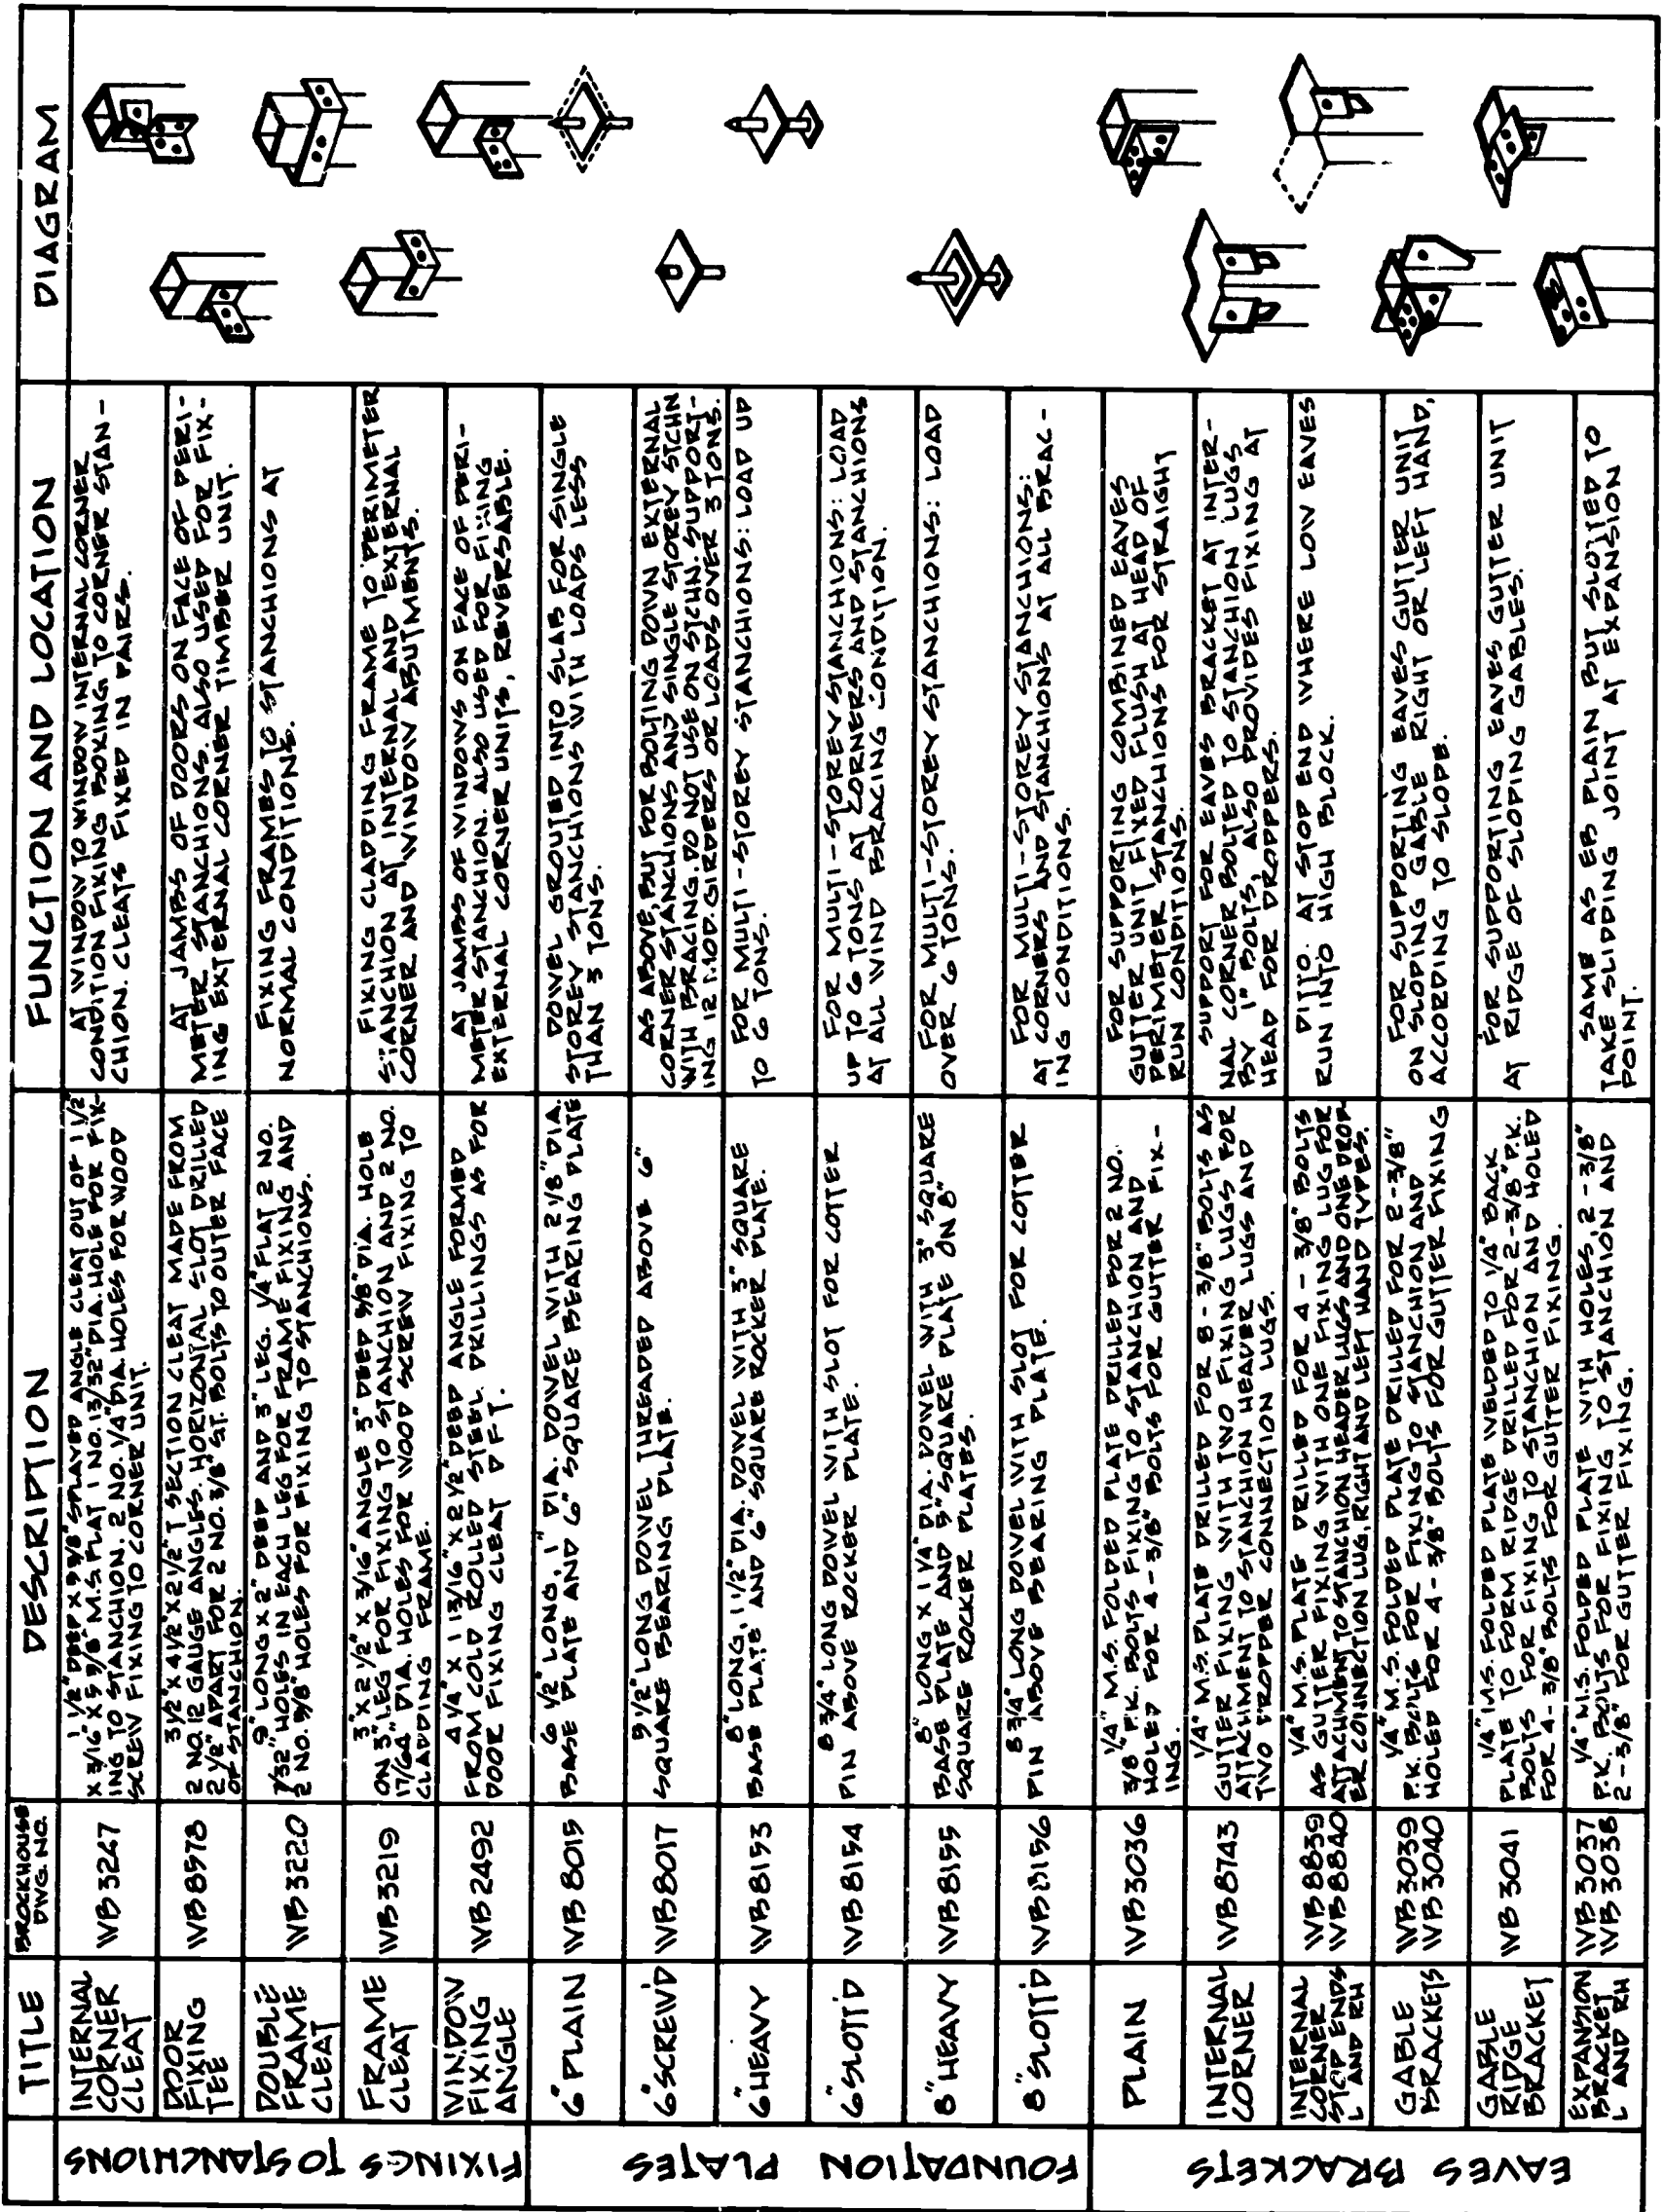 TITLE
BROCKHOUSE
DWG. NO.
DESCRIPTION
FUNCTION AND LOCATION
DIAGRAM
FIXINGS TO STANCHIONS
INTERNAL
CORNER
CLEAT
WB 3247
1 1/2" DEEP X 5 3/8" SPLAYED ANGLE CLEAT OUT OF 1 1/2"
X 3/16" X 5 5/8" M.S. FLAT 1 NO. 13/32" DIA. HOLE FOR FIX-
ING TO STANCHION. 2 NO. 1/4" DIA. HOLES FOR WOOD
SCREW FIXING TO CORNER UNIT.
AT WINDOW TO WINDOW INTERNAL CORNER
CONDITION FIXING BOXING TO CORNER STAN-
CHION. CLEATS FIXED IN PAIRS.
DOOR
FIXING
TEE
WB 8578
3 1/2" X 4 1/2" X 2 1/2" T SECTION CLEAT MADE FROM
2 NO. 12 GAUGE ANGLES. HORIZONTAL SLOT DRILLED
2 1/2" APART FOR 2 NO. 3/8" ST. BOLTS TO OUTER FACE
OF STANCHION.
AT JAMBS OF DOORS ON FACE OF PERI-
METER STANCHIONS. ALSO USED FOR FIX-
ING EXTERNAL CORNER TIMBER UNIT.
DOUBLE
FRAME
CLEAT
WB 3220
9" LONG X 2" DEEP AND 3" LEG. 1/4" FLAT 2 NO.
7/32" HOLES IN EACH LEG FOR FRAME FIXING AND
2 NO. 5/8" HOLES FOR FIXING TO STANCHIONS.
FIXING FRAMES TO STANCHIONS AT
NORMAL CONDITIONS.
FRAME
CLEAT
WB 3219
3" X 2 1/2" X 3/16" ANGLE 3" DEEP 5/8" DIA. HOLE
ON 3" LEG FOR FIXING TO STANCHION AND 2 NO.
17/64" DIA. HOLES FOR WOOD SCREW FIXING TO
CLADDING FRAME.
FIXING CLADDING FRAME TO PERIMETER
STANCHION AT INTERNAL AND EXTERNAL
CORNER AND WINDOW ABUTMENTS.
WINDOW
FIXING
ANGLE
WB 2492
4 1/4" X 1 13/16" X 2 1/2" DEEP ANGLE FORMED
FROM COLD ROLLED STEEL. DRILLINGS AS FOR
DOOR FIXING CLEAT D-F-T.
AT JAMBS OF WINDOWS ON FACE OF PERI-
METER STANCHION. ALSO USED FOR FIXING
EXTERNAL CORNER UNITS, REVERSABLE.
FOUNDATION PLATES
6" PLAIN
WB 8015
6 1/2" LONG, 1" DIA. DOWEL WITH 2 1/8" DIA.
BASE PLATE AND 6" SQUARE BEARING PLATE
DOWEL GROUTED INTO SLAB FOR SINGLE
STOREY STANCHIONS WITH LOADS LESS
THAN 3 TONS.
6" SCREW'D
WB 8017
5 1/2" LONG DOWEL THREADED ABOVE 6"
SQUARE BEARING PLATE.
AS ABOVE, BUT FOR BOLTING DOWN EXTERNAL
CORNER STANCHIONS AND SINGLE STOREY STCHN
WITH BRACING. DO NOT USE ON STCHN. SUPPORT-
ING 12 MOD. GIRDERS OR LOADS OVER 3 TONS.
6" HEAVY
WB 8153
8" LONG, 1 1/2" DIA. DOWEL WITH 3" SQUARE
BASE PLATE AND 6" SQUARE ROCKER PLATE.
FOR MULTI-STOREY STANCHIONS: LOAD UP
TO 6 TONS.
6" SLOTT'D
WB 8154
8 3/4" LONG DOWEL WITH SLOT FOR COTTER
PIN ABOVE ROCKER PLATE.
FOR MULTI-STOREY STANCHIONS: LOAD
UP TO 6 TONS AT CORNERS AND STANCHIONS
AT ALL WIND BRACING CONDITION.
8" HEAVY
WB 8155
8" LONG X 1 1/4" DIA. DOWEL WITH 3" SQUARE
BASE PLATE AND 5" SQUARE PLATE ON 8"
SQUARE ROCKER PLATES.
FOR MULTI-STOREY STANCHIONS: LOAD
OVER 6 TONS.
8" SLOTT'D
WB 8156
8 3/4" LONG DOWEL WITH SLOT FOR COTTER
PIN ABOVE BEARING PLATE.
FOR MULTI-STOREY STANCHIONS:
AT CORNERS AND STANCHIONS AT ALL BRAC-
ING CONDITIONS.
EAVES BRACKETS
PLAIN
WB 3036
1/4" M.S. FOLDED PLATE DRILLED FOR 2 NO.
3/8" P.K. BOLTS FIXING TO STANCHION AND
HOLED FOR 4 - 3/8" BOLTS FOR GUTTER FIX-
ING.
FOR SUPPORTING COMBINED EAVES
GUTTER UNIT FIXED FLUSH AT HEAD OF
PERIMETER STANCHIONS FOR STRAIGHT
RUN CONDITIONS.
INTERNAL
CORNER
WB 8743
1/4" M.S. PLATE DRILLED FOR 8 - 3/8" BOLTS AS
GUTTER FIXING WITH TWO FIXING LUGS FOR
ATTACHMENT TO STANCHION HEADER LUGS AND
TWO DROPPER CONNECTION LUGS.
SUPPORT FOR EAVES BRACKET AT INTER-
NAL CORNER BOLTED TO STANCHION LUGS
BY 1" BOLTS, ALSO PROVIDES FIXING AT
HEAD FOR DROPPERS.
INTERNAL
CORNER
STOP ENDS
L AND RH
WB 8839
WB 8840
1/4" M.S. PLATE DRILLED FOR 4 - 3/8" BOLTS
AS GUTTER FIXING WITH ONE FIXING LUG FOR
ATTACHMENT TO STANCHION HEADER LUGS AND ONE DROP-
ER CONNECTION LUG, RIGHT AND LEFT HAND TYPES.
DITTO. AT STOP END WHERE LOW EAVES
RUN INTO HIGH BLOCK.
GABLE
BRACKETS
WB 3039
WB 3040
1/4" M.S. FOLDED PLATE DRILLED FOR 2-3/8"
P.K. BOLTS FOR FIXING TO STANCHION AND
HOLED FOR 4 - 3/8" BOLTS FOR GUTTER FIXING
FOR SUPPORTING EAVES GUTTER UNIT
ON SLOPING GABLE RIGHT OR LEFT HAND,
ACCORDING TO SLOPE.
GABLE
RIDGE
BRACKET
WB 3041
1/4" M.S. FOLDED PLATE WELDED TO 1/4" BACK
PLATE TO FORM RIDGE DRILLED FOR 2-3/8" P.K.
BOLTS FOR FIXING TO STANCHION AND HOLED
FOR 4 - 3/8" BOLTS FOR GUTTER FIXING.
FOR SUPPORTING EAVES GUTTER UNIT
AT RIDGE OF SLOPING GABLES.
EXPANSION
BRACKET
L AND RH
WB 3037
WB 3038
1/4" M.S. FOLDED PLATE WITH HOLES, 2 - 3/8"
P.K. BOLTS FOR FIXING TO STANCHION AND
2 - 3/8" FOR GUTTER FIXING.
SAME AS EB PLAIN BUT SLOTTED TO
TAKE SLIDDING JOINT AT EXPANSION
POINT.